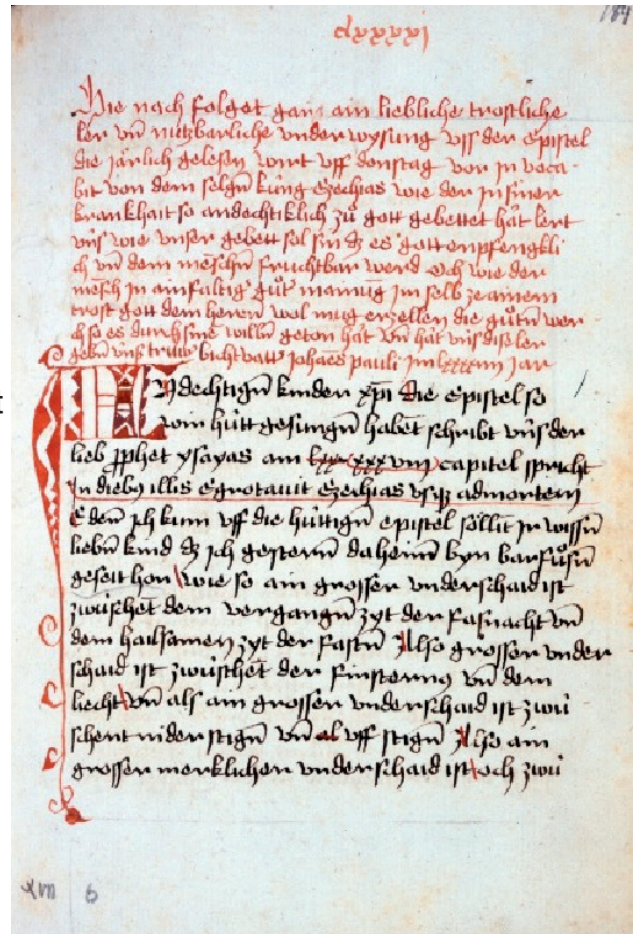 clxxxxj
184
Hie nach folget gar ain liebliche trostliche
ler vnd nutzbarliche vnderwysung vss der Epistel
die järlich gelesen wirt vff donstag vor In voca
bit von dem selgen küng Ezechias wie der In siner
krankhait so andechtiklich zů gott gebettet hăt lert
vns wie vnser gebett sol sin dz es gott enpfengkli
ch vn dem menschen fruchtbar werd och wie der
mensch In ainfaltig gůt mainung Im selb ze ainem
trost gott dem heren wol mag erzellen die gůten wer
ch so es durch sine willen geton hăt vn hăt vns dise ler
geben vnser bichtvatt Johanes pauli Im lxxxxiiij Jar
ANdechtigen kinden xpi die Epistel so
wir hütt gesungen habent schribt vns der
lieb prophet ysayas am xxxviij capitel spricht
In diebus illis Egrotauit Ezechias vsque ad mortem
E den Ich kum vff die hüttigen epistel söllit Ir wissen
lieben kind dz Ich gestern dahaimen byn barfůsen
geseit hon wie so ain grosser vnderschaid ist
zwüschet dem vergangen zyt der fasnacht vn
dem hailsamen zyt der fasten Also grosser vnder
schaid ist zwüschet der finsterny vn dem
liecht vn als ain grosser vnderschaid ist zwü
schent nider stigen vn al vff stigen Also ain
grosser merklicher vnderschaid ist och zwü
xvii 6
t